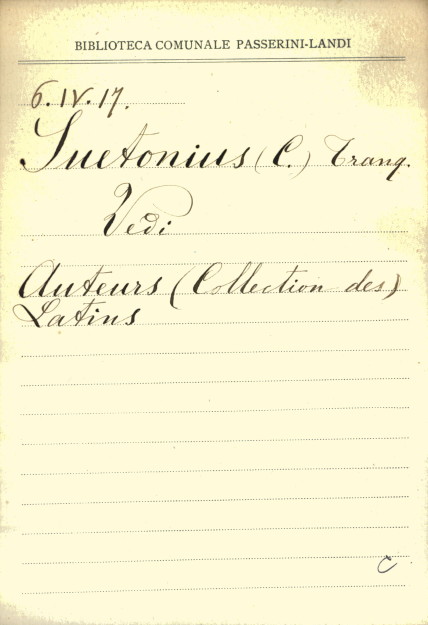 BIBLIOTECA COMUNALE PASSERINI-LANDI
6.IV.17.
Suetonius (C.) Tranq.
Vedi
Auteurs (Collection des)
Latins
C